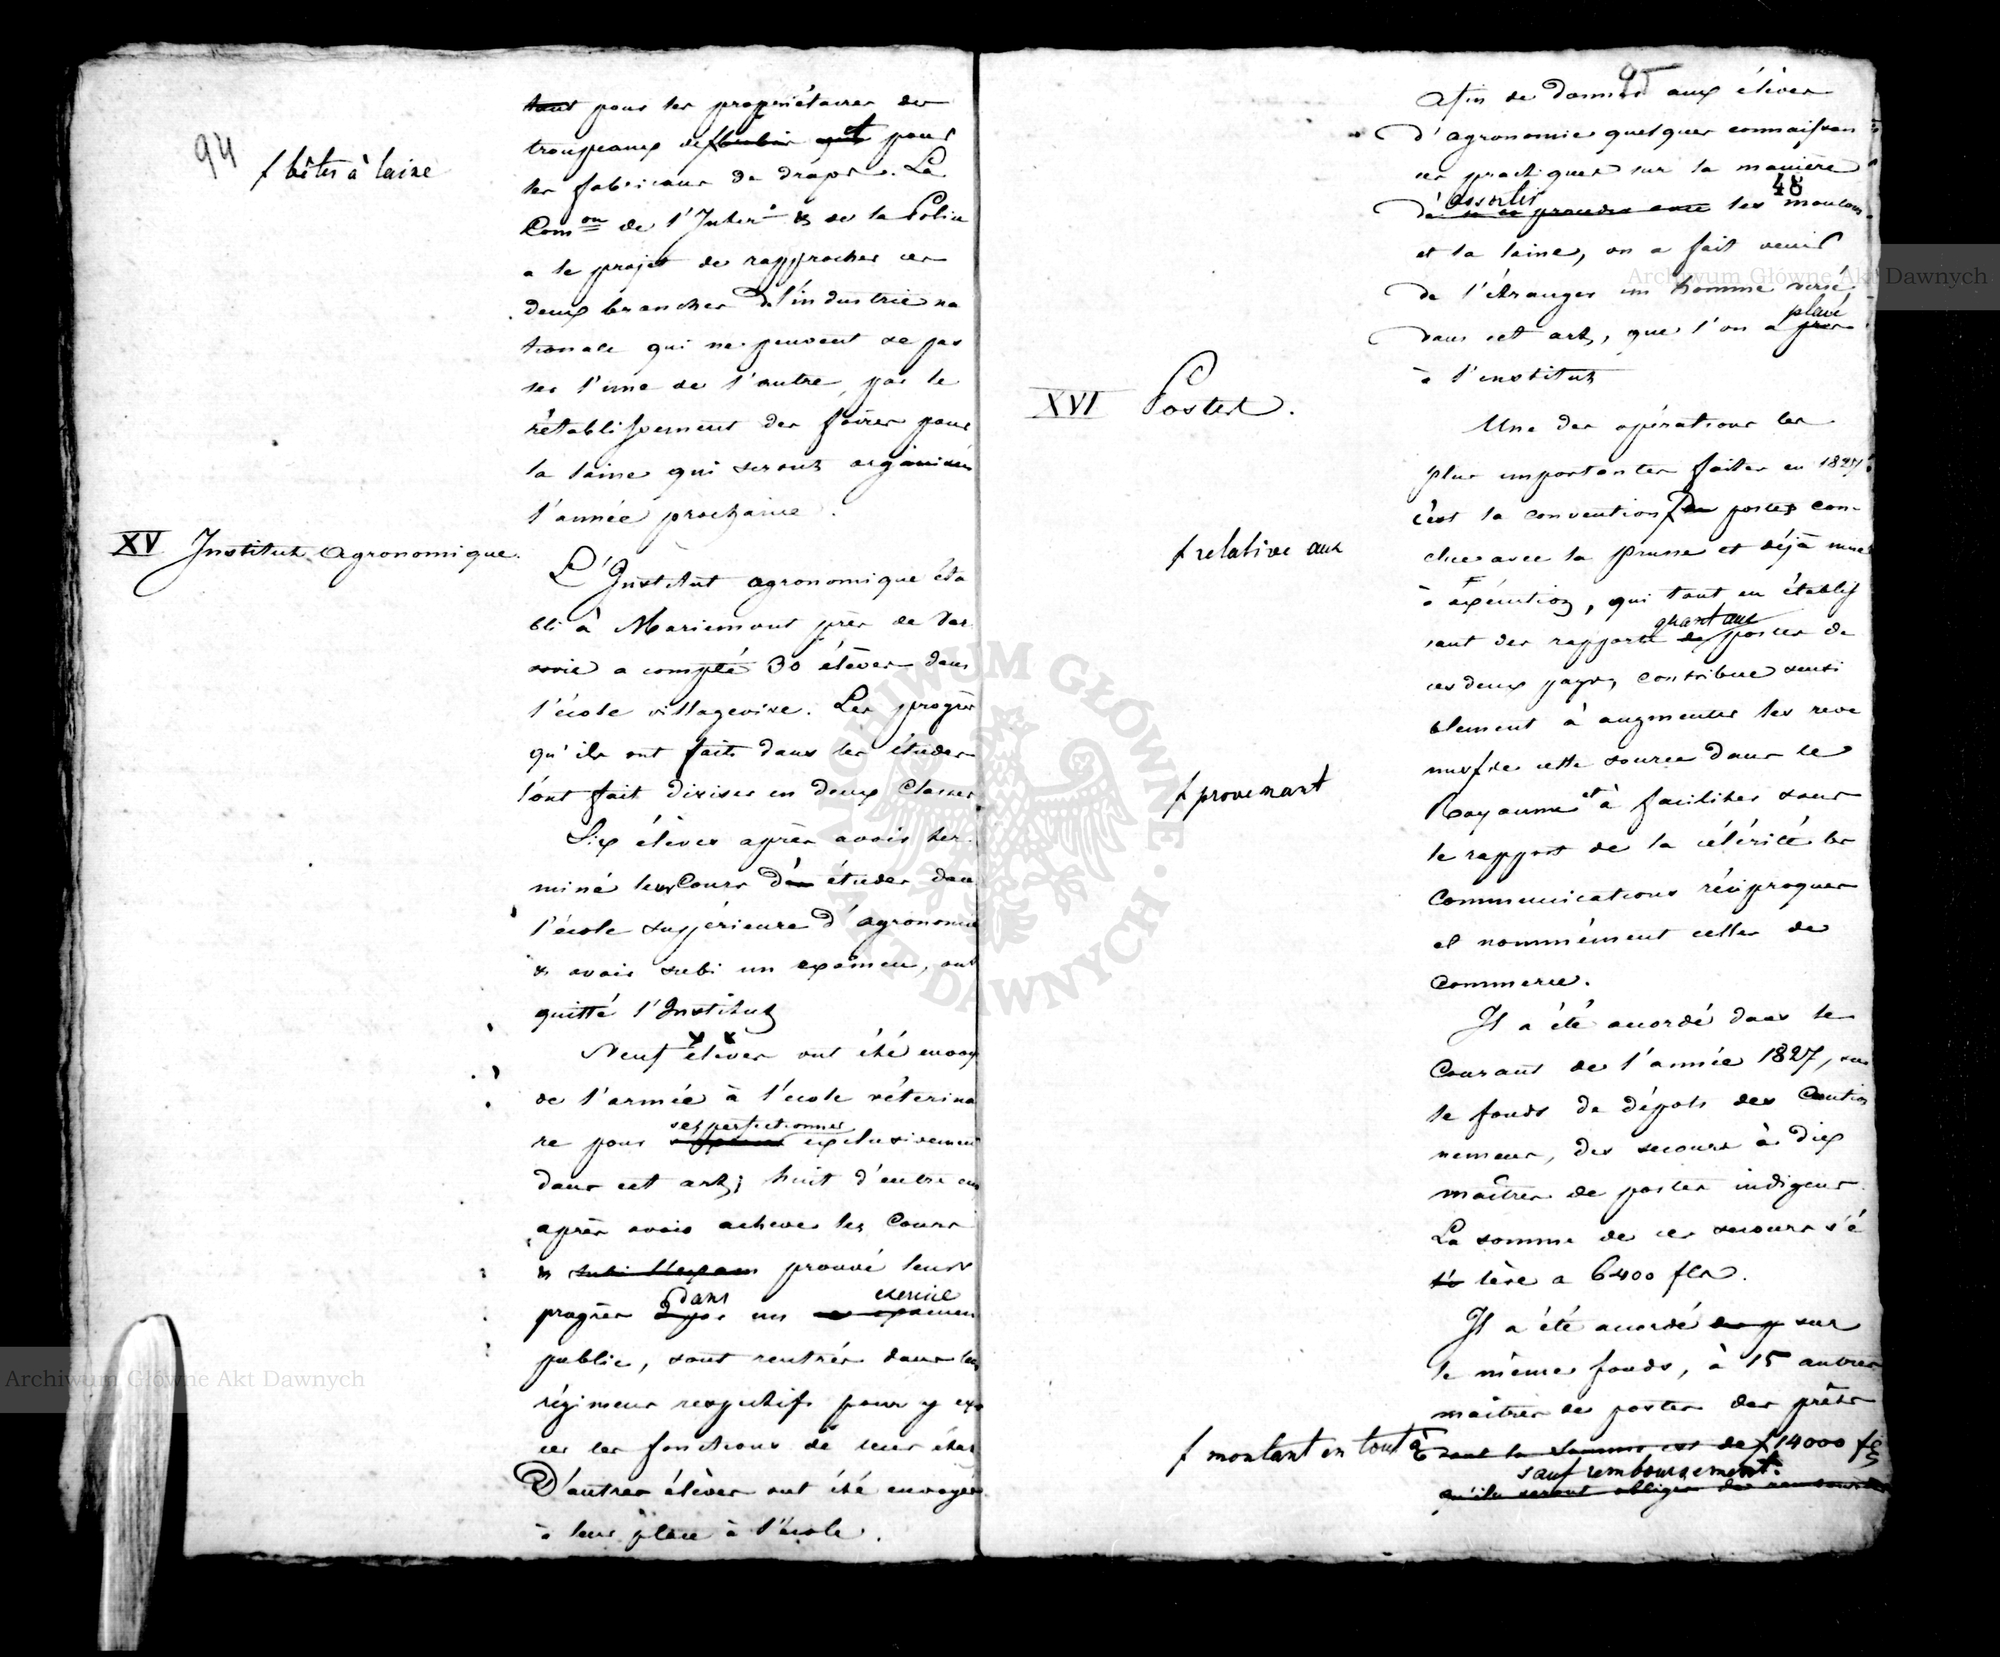 94
ƒ bêtes à laine
tant pour les propriétaires de
troupeaux de brebis que et pour
les fabricans de draps. La
Com.on de l'Inter. & de la Police
a le projet de rapprocher ces
deux branches d'industrie na
tionale qui ne peuvent se pas
ser l'une de l'autre, par le
rétablissement des foires pour
la laine qui seront organisées
l'année prochaine.
XV Institut Agronomique.
L'Institut agronomique éta
bli à Mariemont près de Var
sovie a compté 30 élèves dans
l'école villageoise. Les progrès
qu'ils ont faits dans les études
l'ont fait diviser en deux Classes
Six élèves après avoir ter-
miné leurs Cours d'études dans
l'école supérieure d'agronomie
& avoir subi un examen, ont
quitté l'Institut
Neuf élèves ont été envoy
de l'armée à l'école vétérinai
re pour se perfectionner exclusivement
dans cet art; huit d'entre eux
après avoir achevé les Cours
& subi l'examen prouvé leurs
progrès dans un exercice examen
public, sont rentrés dans leurs
régimens respectifs pour y exer
cer les fonctions de leur état
D'autres élèves ont été envoyés
à leur place à l'école.
95
48
Afin de donner aux élèves
d'agronomie quelques connaissan
ces practiques sur la manière
d'assortir les moutons
et la laine, on a fait venir
de l'étranger un homme versé
dans cet art, que l'on a placé
à l'institut
XVI Postes.
Une des opérations les
plus importantes faites en 1827
c'est la convention ƒ des postes con-
ƒ relative aux
clue avec la Prusse et déjà mise
à exécution, qui tout en établis
sant des rapports quant aux de postes de
ces deux pays, contribue sensi
blement à augmenter les reve
nus ƒ de cette source dans le
ƒ provenant
Royaume et à faciliter sous
le rapport de la célérité les
communications réciproques
et nommément celles de
Commerce.
Il a été accordé dans le
Courant de l'année 1827, sur
le fonds de dépots des Caution
nemens, des secours à dix
maîtres de postes indigens.
La somme de ces secours s'é
lève a 6400 fls.
Il a été accordé sur
le même fonds, à 15 autres
maîtres de postes des prêts
ƒ montant en tout à dont la somme est de ƒ 14000 fls
sauf remboursement.
qu'ils seront obligés de rembourser